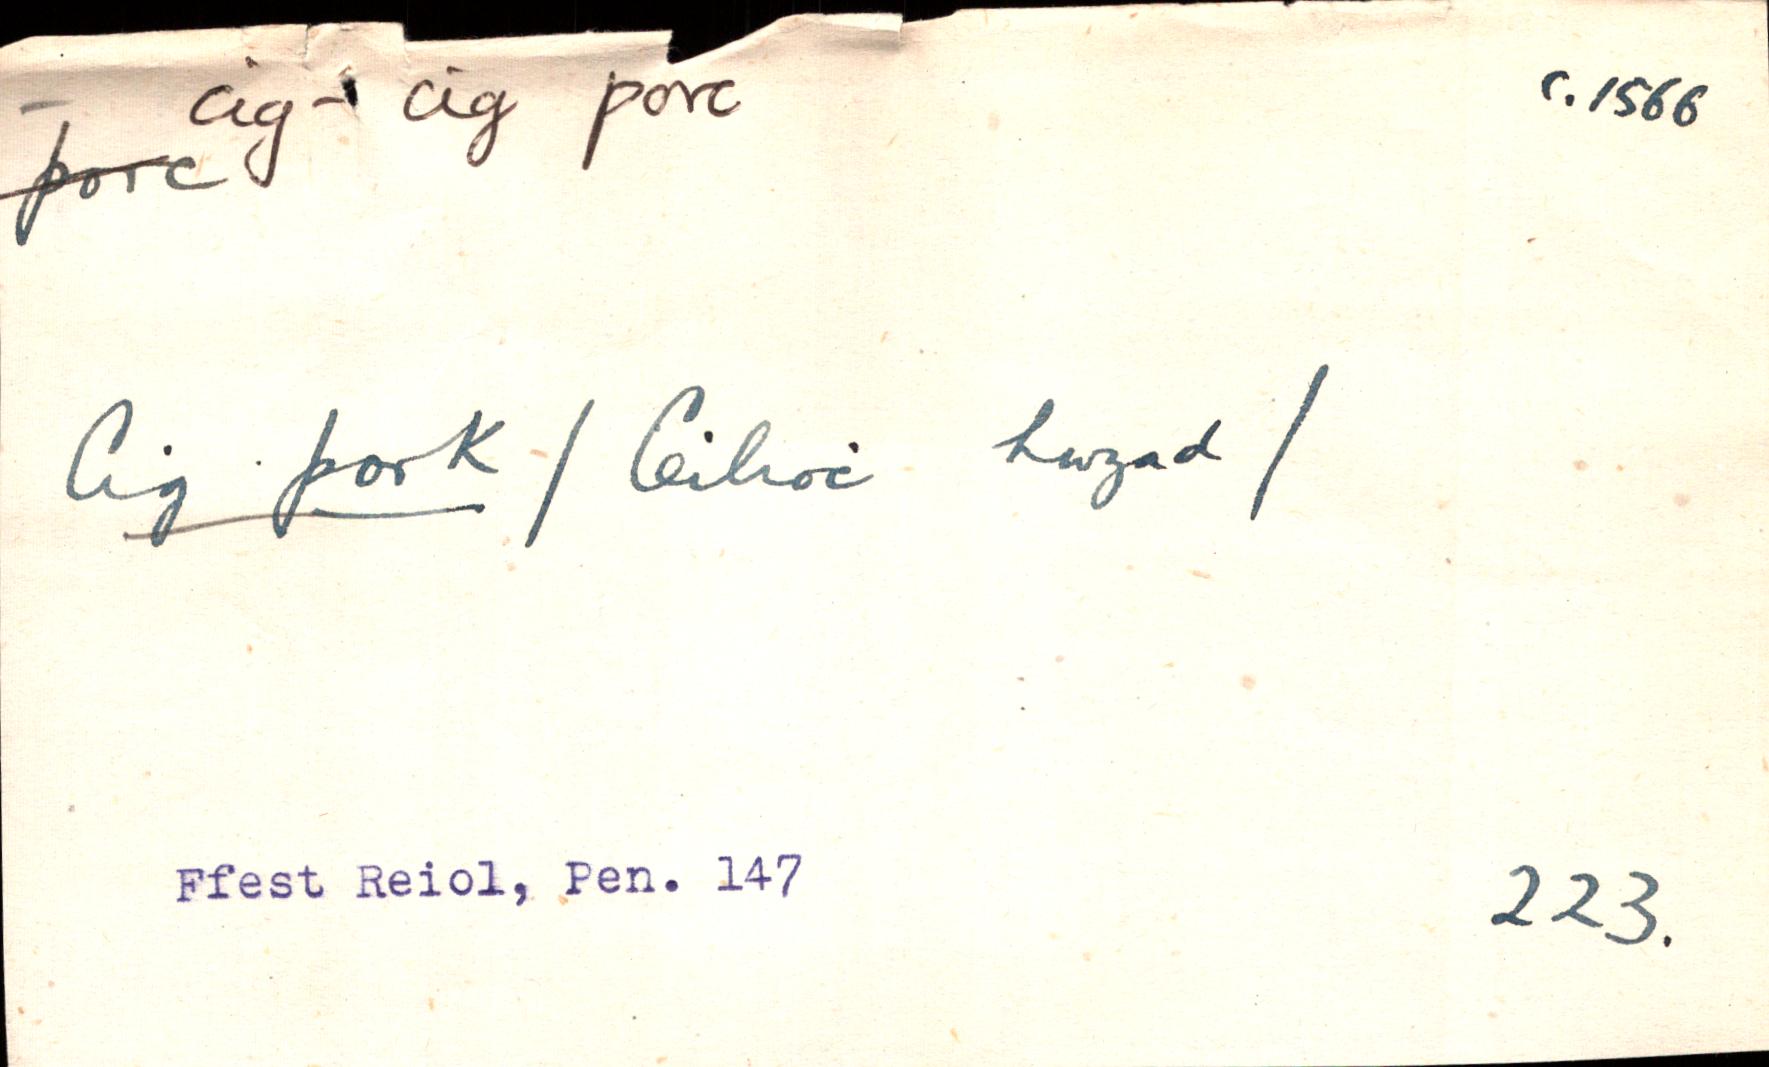 - cig - cig porc c.1566
porc
Cig pork / Ceilioc hwyad /
Ffest Reiol, Pen. 147 223.